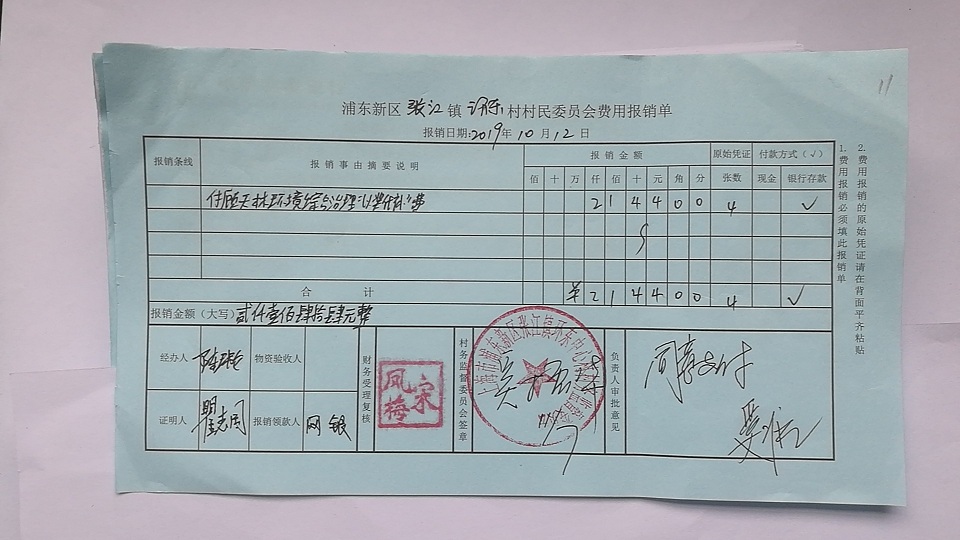 11
浦东新区张江镇环东村村民委员会费用报销单
报销日期:2019年10月12日
报销条线 报销事由摘要说明 报销金额 原始凭证 付款方式(√)
佰 十 万 仟 佰 十 元 角 分 张数 现金 银行存款
环境综合治理 2 1 4 4 0 0 4 √
合计 ¥ 2 1 4 4 0 0 4 √
报销金额(大写)贰仟壹佰肆拾肆元整
经办人 物资验收人 财务受理复核 宋凤梅 村务监督委员会签章 负责人审批意见 同意支付
证明人 瞿志周 报销领款人 网银
上海市浦东新区张江镇环东中心村村务监督委员会
1. 费用报销必须填此报销单
2. 费用报销的原始凭证请在背面平齐粘贴